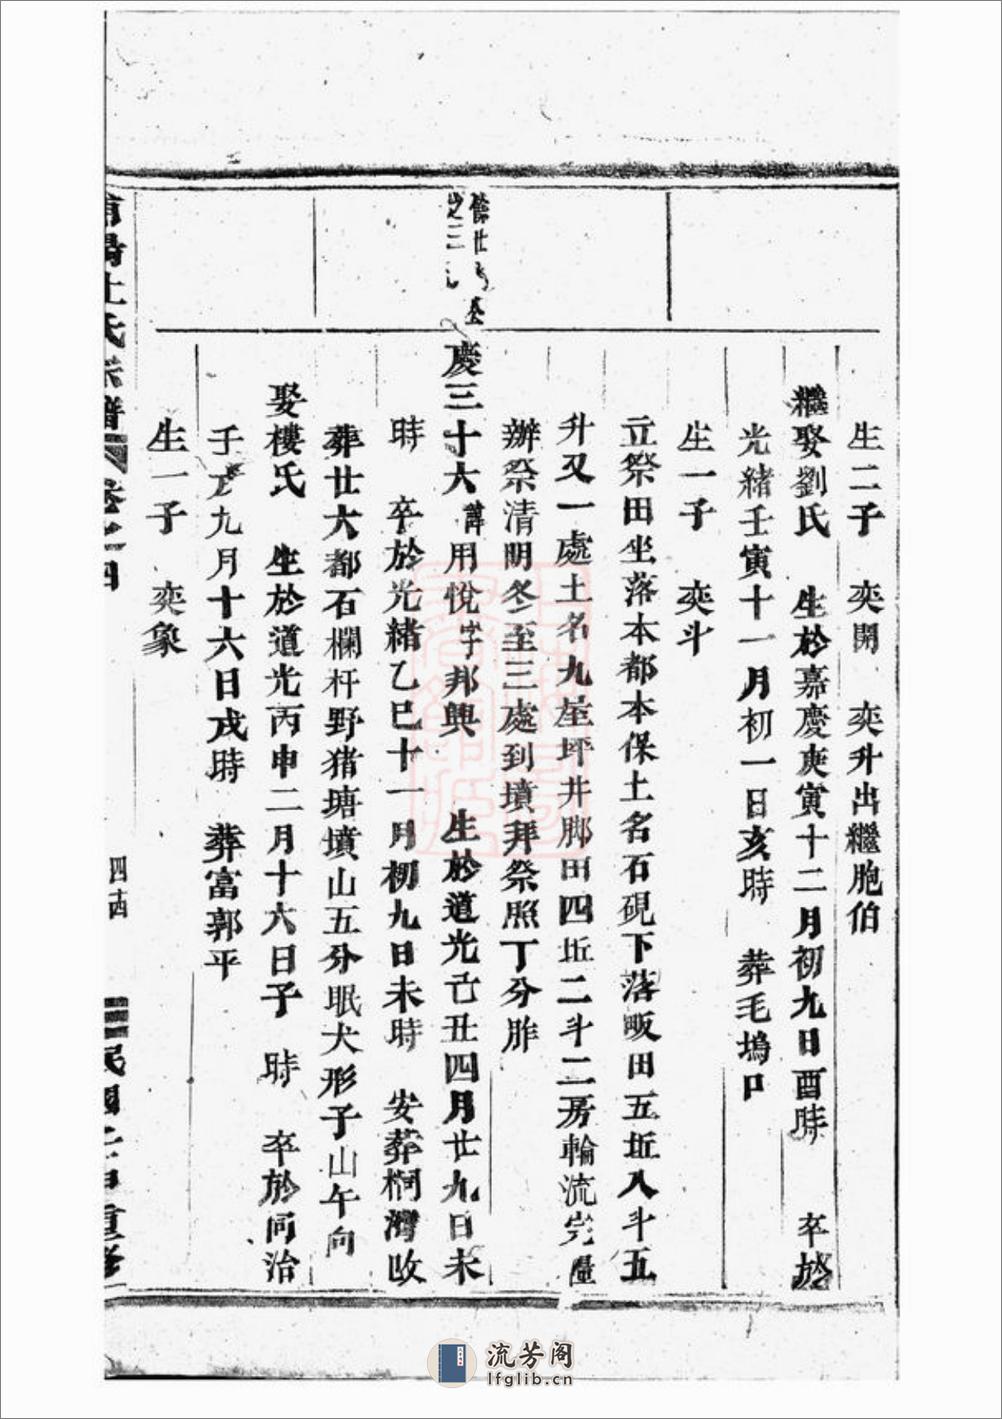 生二子　奕開　奕升出繼胞伯
繼娶劉氏　生於嘉慶庚寅十二月初九日酉時　卒於
光緒壬寅十一月初一日亥時　葬毛塢口
生一子　奕斗
立祭田坐落本都本保土名石硯下落畈田五坵八斗五
升又一處土名九屋坪井脚田四坵二斗二房輪流完糧
辦祭清明冬至三處到墳拜祭照丁分胙
慶三十六諱用悅字邦興　生於道光己丑四月廿九日未
時　卒於光緒乙巳十一月初九日未時　安葬桐灣改
葬廿六都石欄杆野猪塘墳山五分眠犬形子山午向
娶樓氏　生於道光丙申二月十六日子時　卒於同治
九月十六日戌時　葬富郭平
生一子　奕象
氏宗譜　卷之四　四十四　民國　重修
流芳阁
lfglib.cn